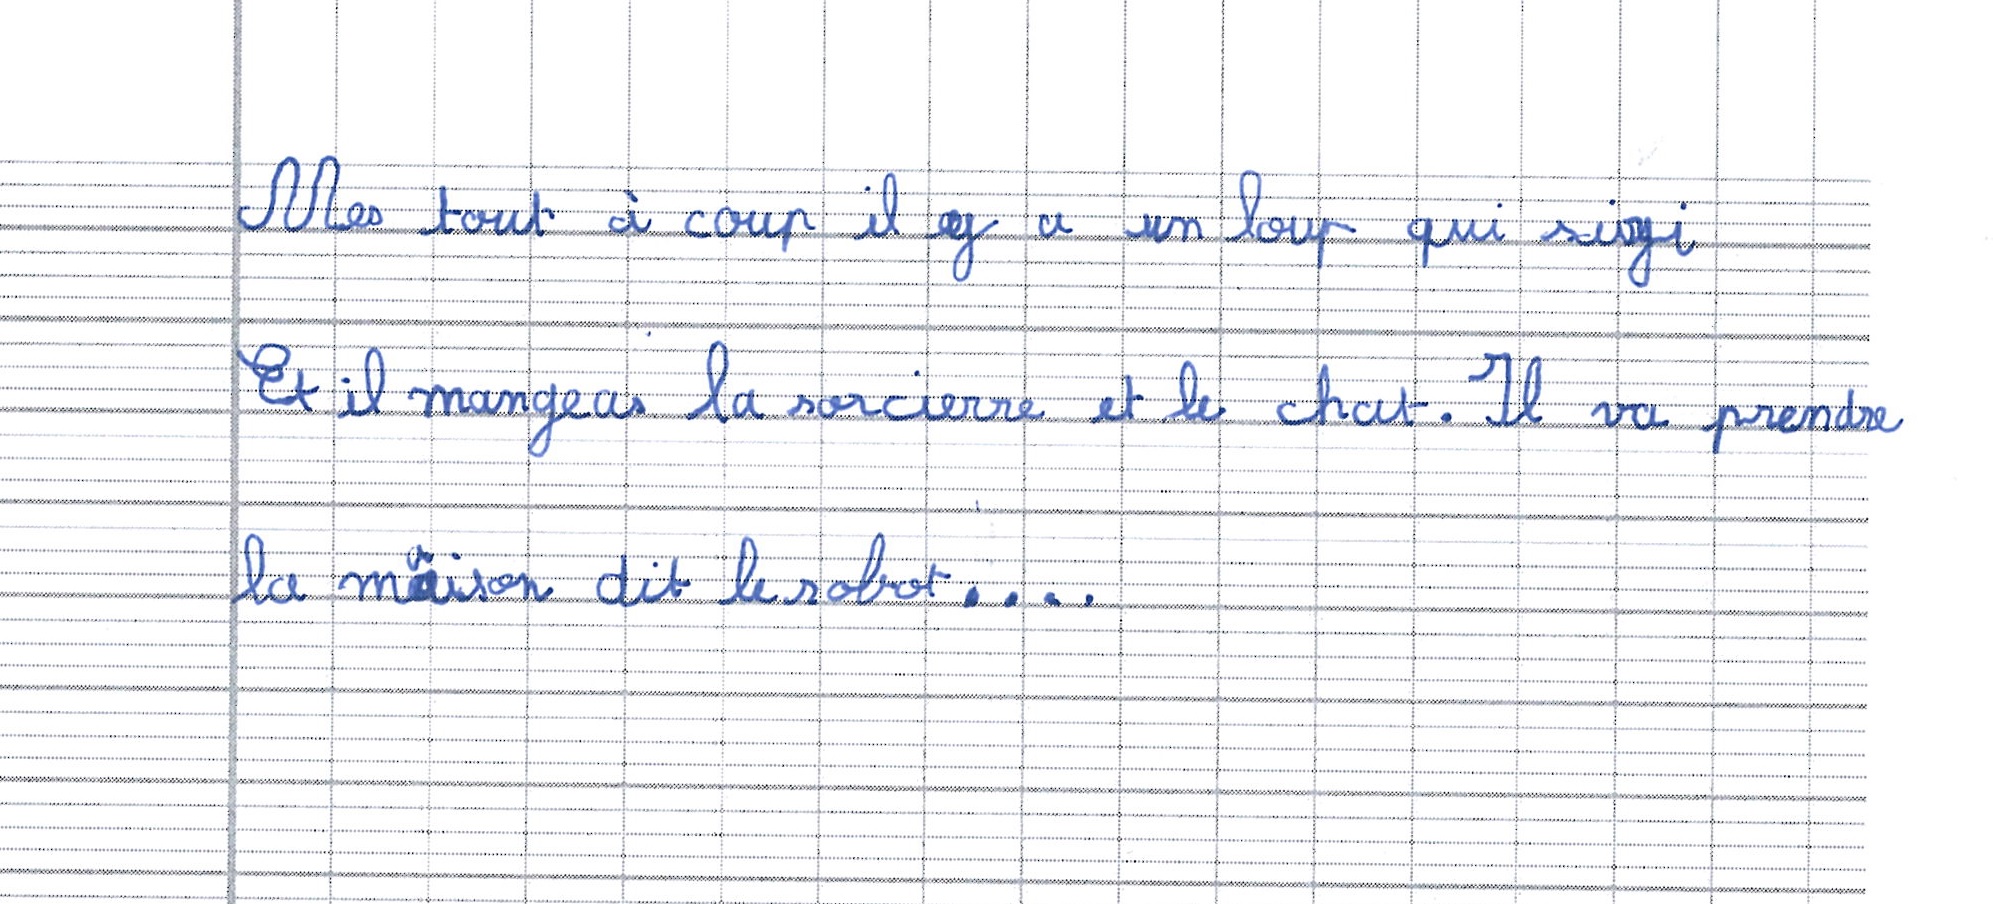 Mes tout à coup il y a un loup qui sigi
Et il mangeas la sorcierre et le chat. Il va prendre
la maison dit le robot....